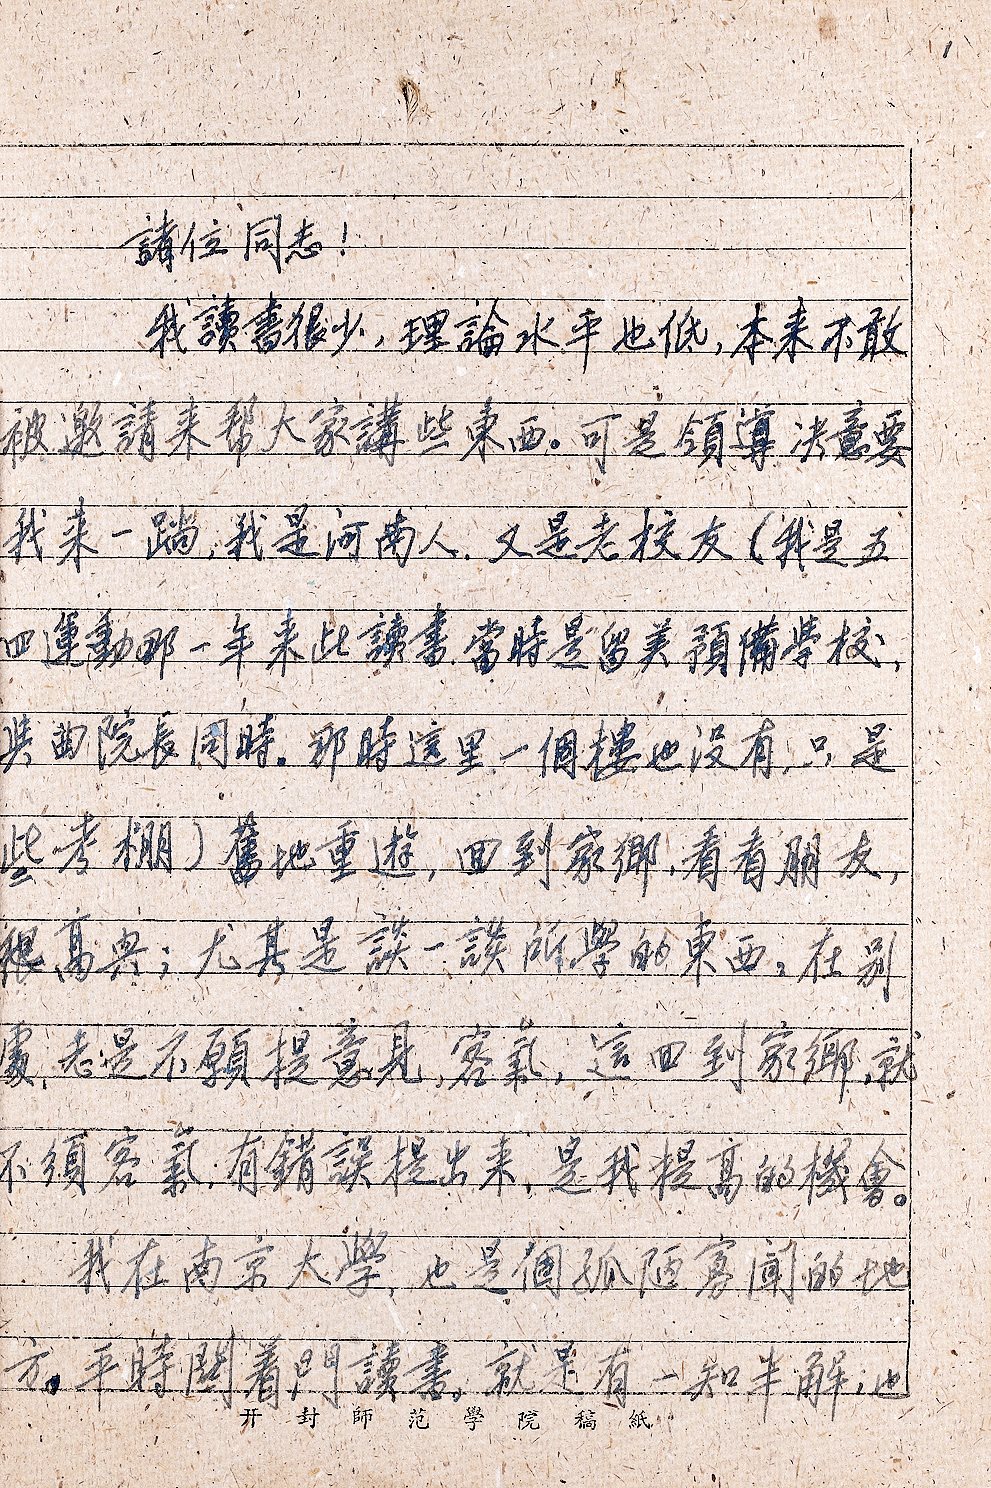 1
諸位同志！
我讀書很少，理論水平也低，本来不敢
被邀請来帮大家講些東西。可是領導决意要
我来一趟，我是河南人，又是老校友（我是五
四運動那一年来此讀書，當時是留美預備學校，
與曲院長同時。那時這里一個樓也没有，只是
些考棚）舊地重遊，回到家鄉，看看朋友，
很高興；尤其是談一談所學的東西，在别
處，老是不願提意見，客氣，這回到家鄉，就
不須客氣，有錯誤提出来，是我提高的機會。
我在南京大學，也是個孤陋寡聞的地
方。平時關着門讀書。就是有一知半解，也
开封師范學院稿紙